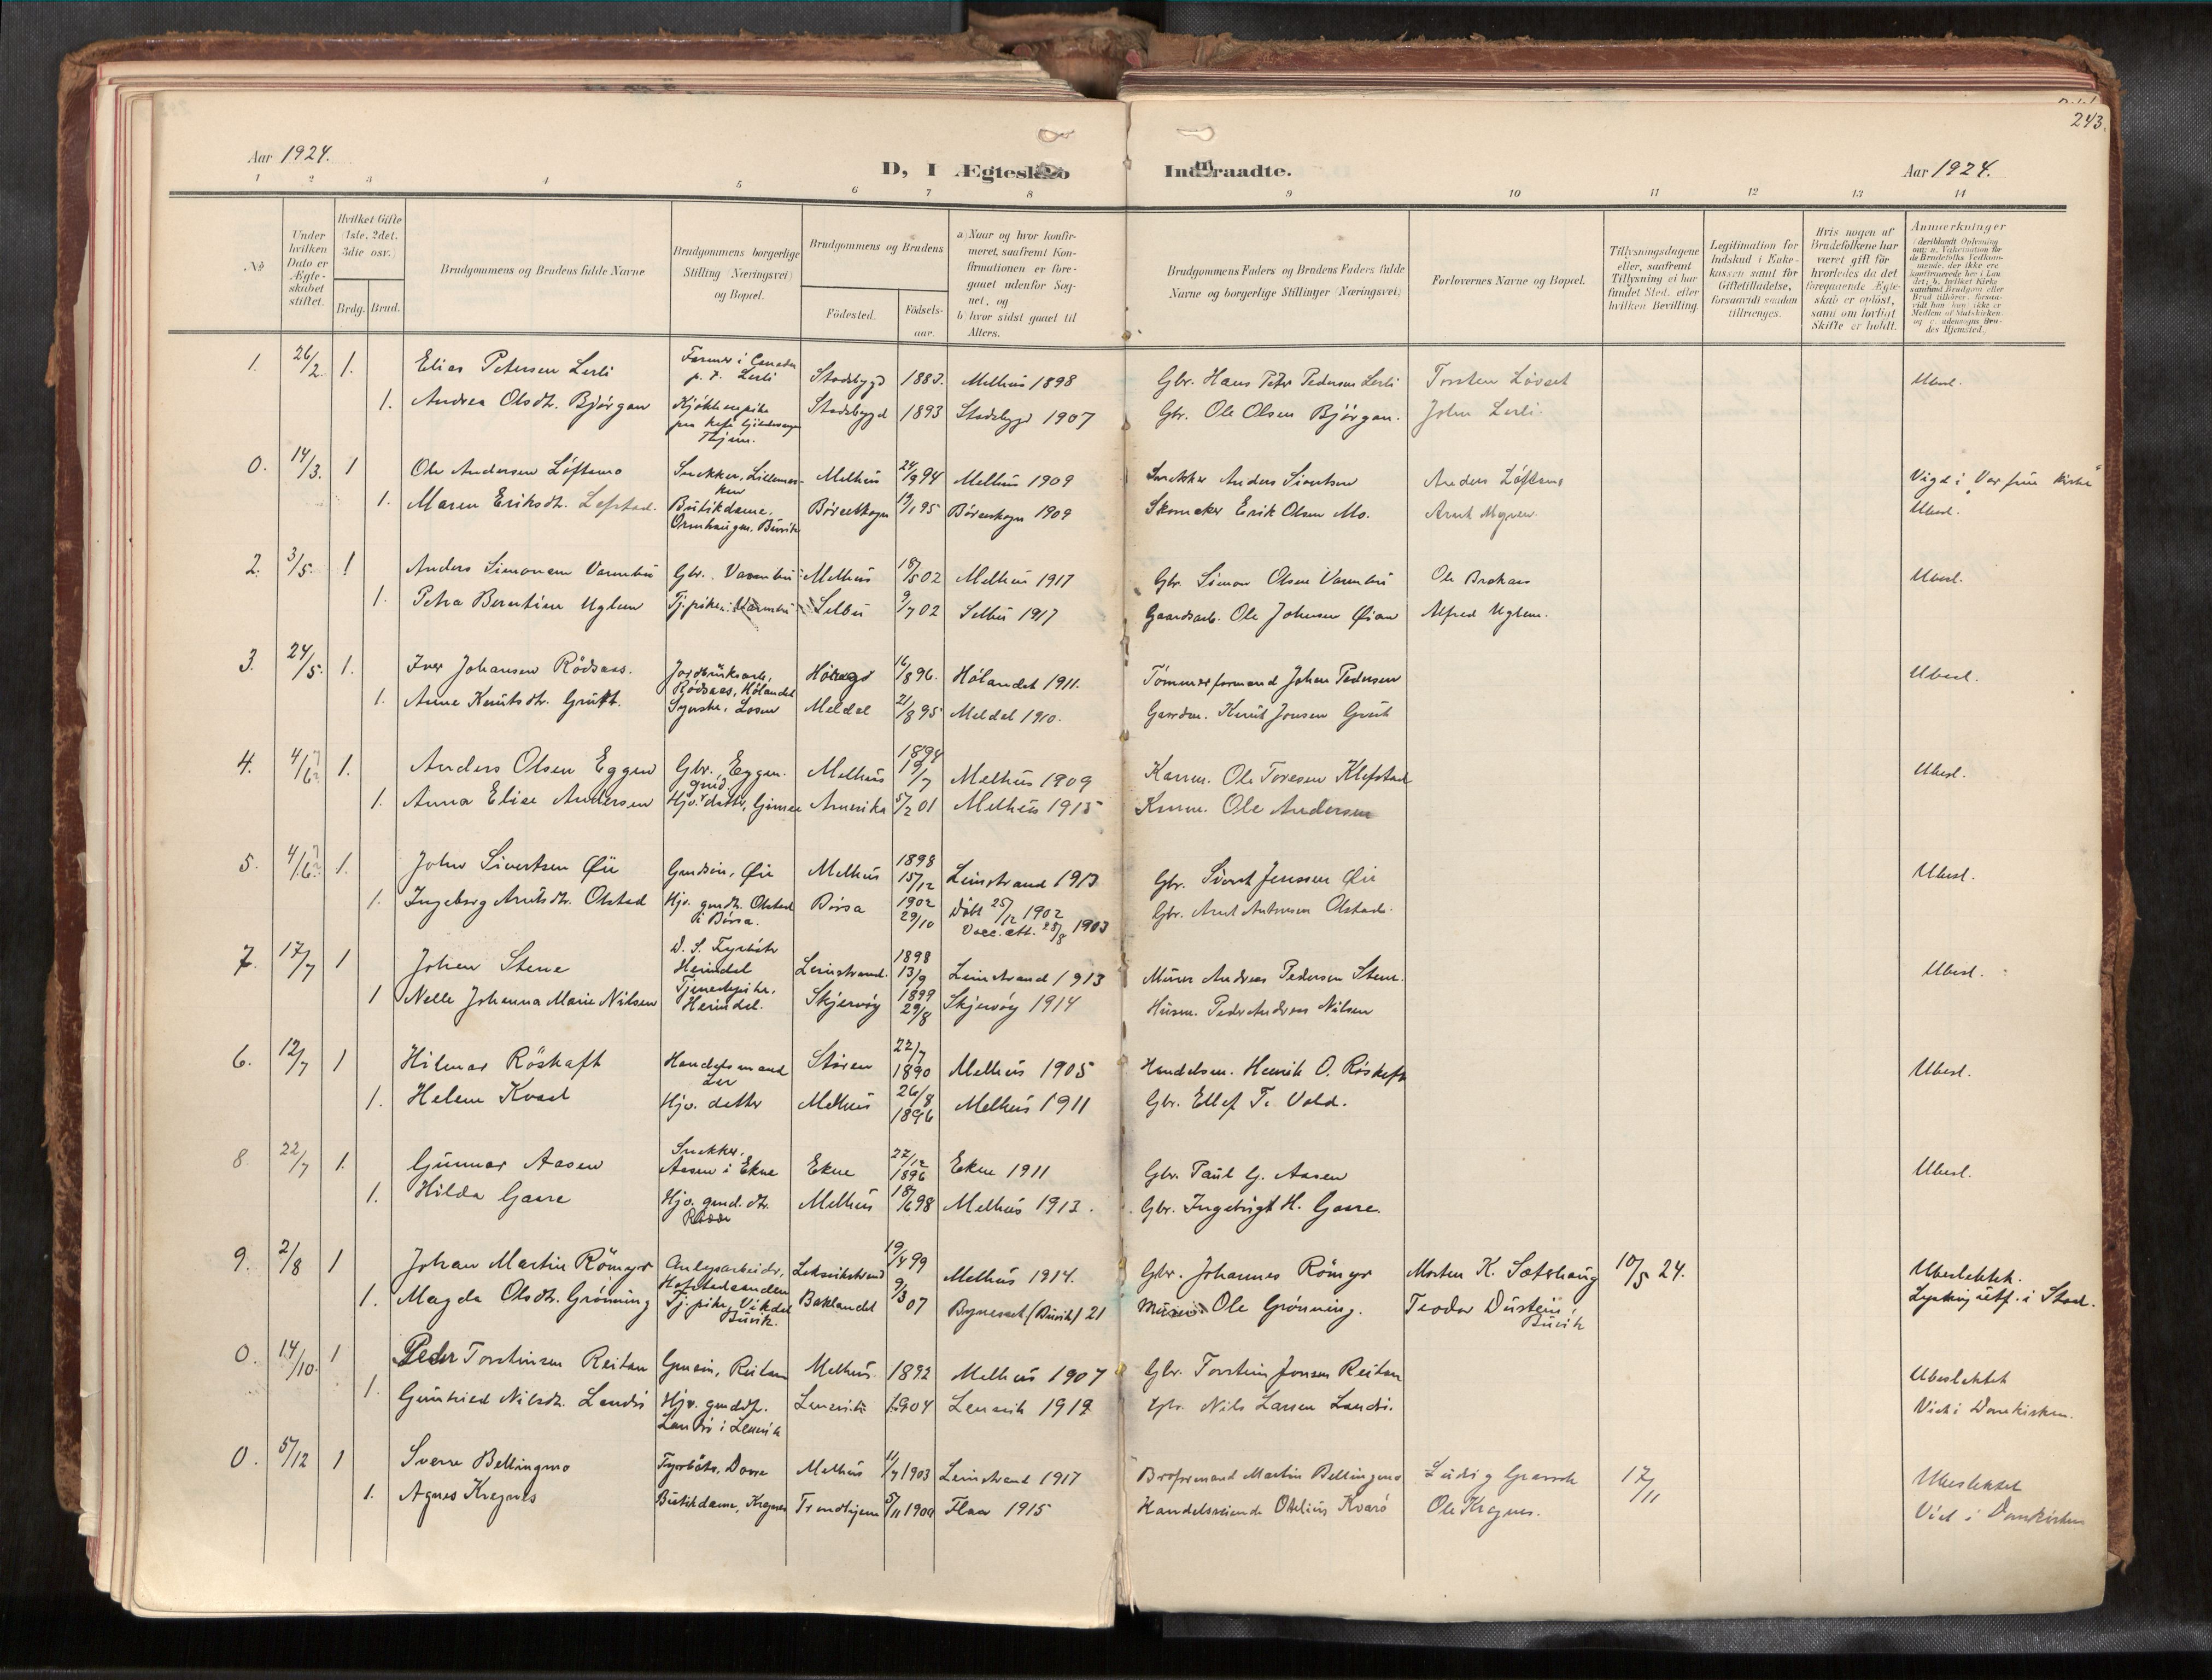 243.
Aar 1924.
D, I Ægteskab Indtraadte.
Aar 1924.
1 2 3 4 5 6 7 8 9 10 11 12 13 14
No
Under hvilken Dato er Ægteskabet stiftet.
Hvilket Gifte (1ste, 2det, 3die osv.)
Brdg. Brud.
Brudgommens og Brudens fulde Navne
Brudgommens borgerlige Stilling (Næringsvei) og Bopæl.
Brudgommens og Brudens
Födested. Födselsaar.
a) Naar og hvor konfirmeret, saafremt Konfirmationen er foregaaet udenfor Sognet, og
b) hvor sidst gaaet til Alters.
Brudgommens Faders og Brudens Faders fulde Navne og borgerlige Stillinger (Næringsvei)
Forlovernes Navne og Bopæl.
Tillysningsdagene eller, saafremt Tillysning ei har fundet Sted, efter hvilken Bevilling.
Legitimation for Indskud i Enkekassen samt for Giftetilladelse, forsaavidt saadan tiltrænges.
Hvis nogen af Brudefolkene har været gift før, hvorledes da det foregaaende Ægteskab er opløst, samt om lovligt Skifte er holdt.
Anmærkninger
1. 26/2 1. Elias Petersen Lerli Farmer i Canada p. t. Lerli Stadsbygd 1883. Melhus 1898 Gbr. Hans Peter Pedersen Lerli Torsten Løvset Ubesl.
1. Andrea Olsdtr. Bjørgan Kjøkkenpike Thjem. Stadsbygd 1893 Stadsbygd 1907 Gbr. Ole Olsen Bjørgan. John Lerli.
0. 14/3. 1 Ole Andersen Löftamo Snekker, Melhus 24/9 94 Melhus 1909 Snekker Anders Sivertsen Anders Löftamo Vigd i "Vor frue kirke"
1. Maren Eriksdtr. Lefstad. Butikdame, Ormhaugen, Buvik Børseskogn 19/1 95 Børseskogn 1909 Skomaker Erik Olsen Mo. Arnt Ubesl.
2. 3/5. 1 Anders Simonsen Varmbu Gbr. Varmbu Melhus 18/5 02 Melhus 1917 Gbr. Simon Olsen Varmbu Ole Ubesl.
1. Petra Berntine Uglem Tj.pike Varmbu Selbu 9/7 02 Selbu 1917 Gaardsarb. Ole Johnsen Øian Alfred Uglem.
3. 24/5. 1. Iver Johansen Rödsaas. Jordbruksarb., Rödsaas, Hölandet 16/8 96. Hölandet 1911. Tömmerformand Johan Pedersen Ubesl.
1. Anne Knutsdtr. Grutt. Syerske, Losen Meldal 21/8 95 Meldal 1910. Gaardm. Knut Jonsen Grut
4. 4/6 1. Anders Olsen Eggen Gbr. Eggen. Melhus 1894 19/7 Melhus 1909 Ole Toresen Klefstad Ubesl.
1. Anna Elise Andersen Hjv. grud. datter, Gimse Amerika 5/2 01 Melhus 1915 Ole Andersen
5. 4/6 1. John Sivertsen Øie Gmdsøn, Øie Melhus 1898 15/12 Leinstrand 1913 Gbr. Sivert Jenssen Øie Ubesl.
1. Ingeborg Arntsdtr. Olstad Hjv. gmdtr. Olstad i Børsa. Børsa 1902 29/10 Döbt 25/12 1902 Vacc. att. 28/8 1903 Gbr. Arnt Antonsen Olstad.
7. 17/7 1 Johan Stene D. S. Fyrböter Heimdal Leinstrand. 1898 13/9 Leinstrand 1913 Murer Andreas Pedersen Stene. Ubesl.
1 Nelle Johanna Marie Nilsen Tjenestepike, Heimdal. Skjervöy 1899 29/8 Skjervöy 1914 Husm. Peder Andreas Nilsen
6. 12/7 1 Hilmar Röskaft Handelsmand Ler Støren 22/7 1890 Melhus 1905 Handelsm. Henrik O. Röskaft Ubesl.
1. Helene Kvaal Hjv. datter Melhus 26/8 1896 Melhus 1911 Gbr. Ellef T. Vold.
8 22/7 1. Gunnar Aasen Snekker. Aasen i Ekne Ekne 27/12 1896 Ekne 1911 Gbr. Paul G. Aasen Ubesl.
1. Hilda Gaare Hjv. gmd. dtr. Melhus 18/6 98 Melhus 1913. Gbr. Ingebrigt H. Gaare.
9. 2/8 1 Johan Martin Römyr Anlegsarbeider, Leksvikstrand 19/4 99 Melhus 1914. Gbr. Johannes Römyr Morten K. Sæterhaug 10/5 24. Ubeslektet.
1. Magda Olsdtr. Grönning Tj.pike, Vikdal Buvik. Baklandet 9/3 07 Byneset (Buvik) 21 Murer Ole Grönning. Teodor Durstein, Buvik Lysning utf. i Stad.
0. 14/10. 1 Peder Torstensen Reitan Gmsøn, Reitan Melhus. 1892 Melhus 1907 Gbr. Torstein Jonsen Reitan Ubeslektet
1. Gunhild Nilsdtr. Landrö Hjv. gmddtr. Landrö i Lensvik Lensvik 1904 Lensvik 1919 Gbr. Nils Larsen Landrö. Viet i Domkirken.
0. 5/12 1 Sverre Bollingmo Fyrböter, Melhus 11/7 1903 Leinstrand 1917 Broformand Martin Bollingmo Ludvig 17/11 Ubeslektet
1. Agnes Kregnes Butikdame, Kregnes Trondhjem 5/11 1900 Flaa 1915 Handelsreisende Otelius Kvarö Ole Kregnes. Viet i Domkirken